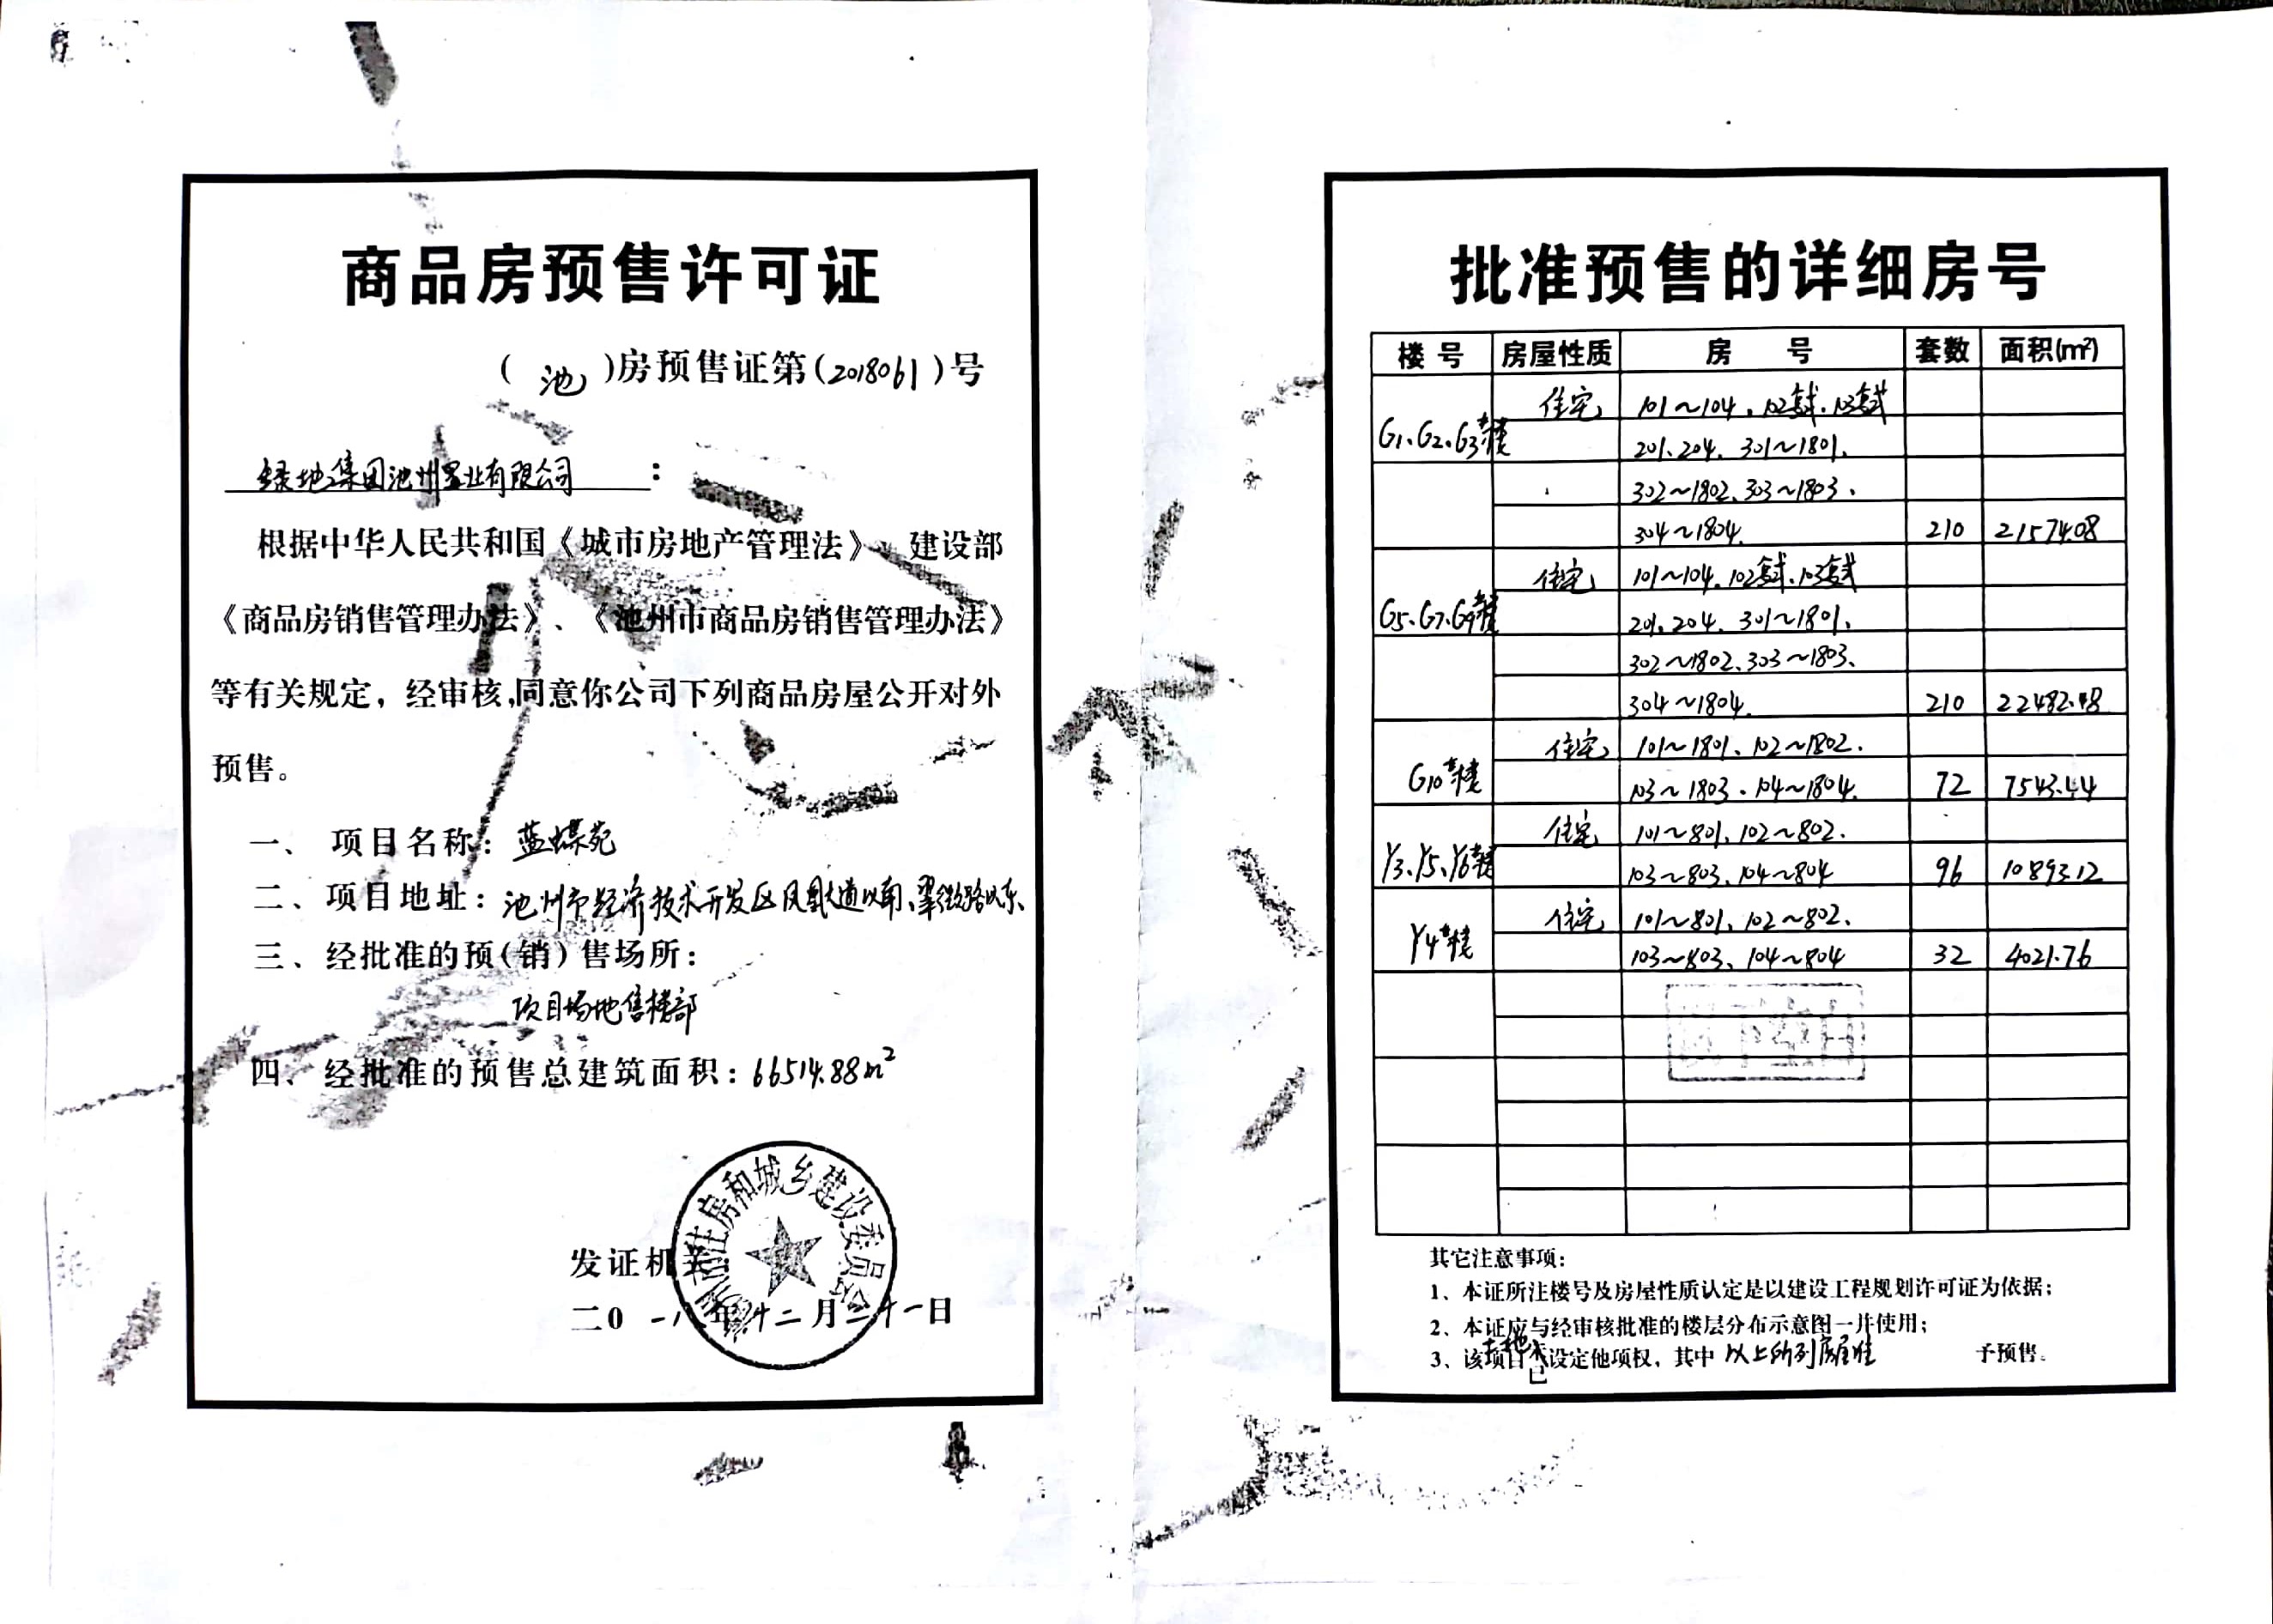 商品房预售许可证
(池)房预售证第(2018061)号
绿地集团池州置业有限公司:
根据中华人民共和国《城市房地产管理法》、建设部
《商品房销售管理办法》、《池州市商品房销售管理办法》
等有关规定,经审核,同意你公司下列商品房屋公开对外
预售。
一、项目名称:蓝蝶苑
二、项目地址:池州市经济技术开发区凤凰大道以南、翠微路以东、
三、经批准的预(销)售场所:
项目场地售楼部
四、经批准的预售总建筑面积:66514.88m²
住房和城乡建设委员会
发证机关
二0一八年十二月二十一日
批准预售的详细房号
楼号 房屋性质 房号 套数 面积(m²)
住宅 101~104、102复式、103复式
G1、G2、G3#楼 201、204、301~1801、
302~1802、303~1803、
304~1804. 210 21574.08
住宅 101~104、102复式、103复式
G5、G7、G9#楼 201、204、301~1801、
302~1802、303~1803、
304~1804. 210 22482.48
住宅 101~1801、102~1802、
G10#楼 103~1803、104~1804. 72 7543.44
住宅 101~801、102~802、
Y3、Y5、Y6#楼 103~803、104~804 96 10893.12
住宅 101~801、102~802、
Y4#楼 103~803、104~804 32 4021.76
其它注意事项:
1、本证所注楼号及房屋性质认定是以建设工程规划许可证为依据;
2、本证应与经审核批准的楼层分布示意图一并使用;
3、该项目土地未已设定他项权,其中以上所列房屋准予预售。